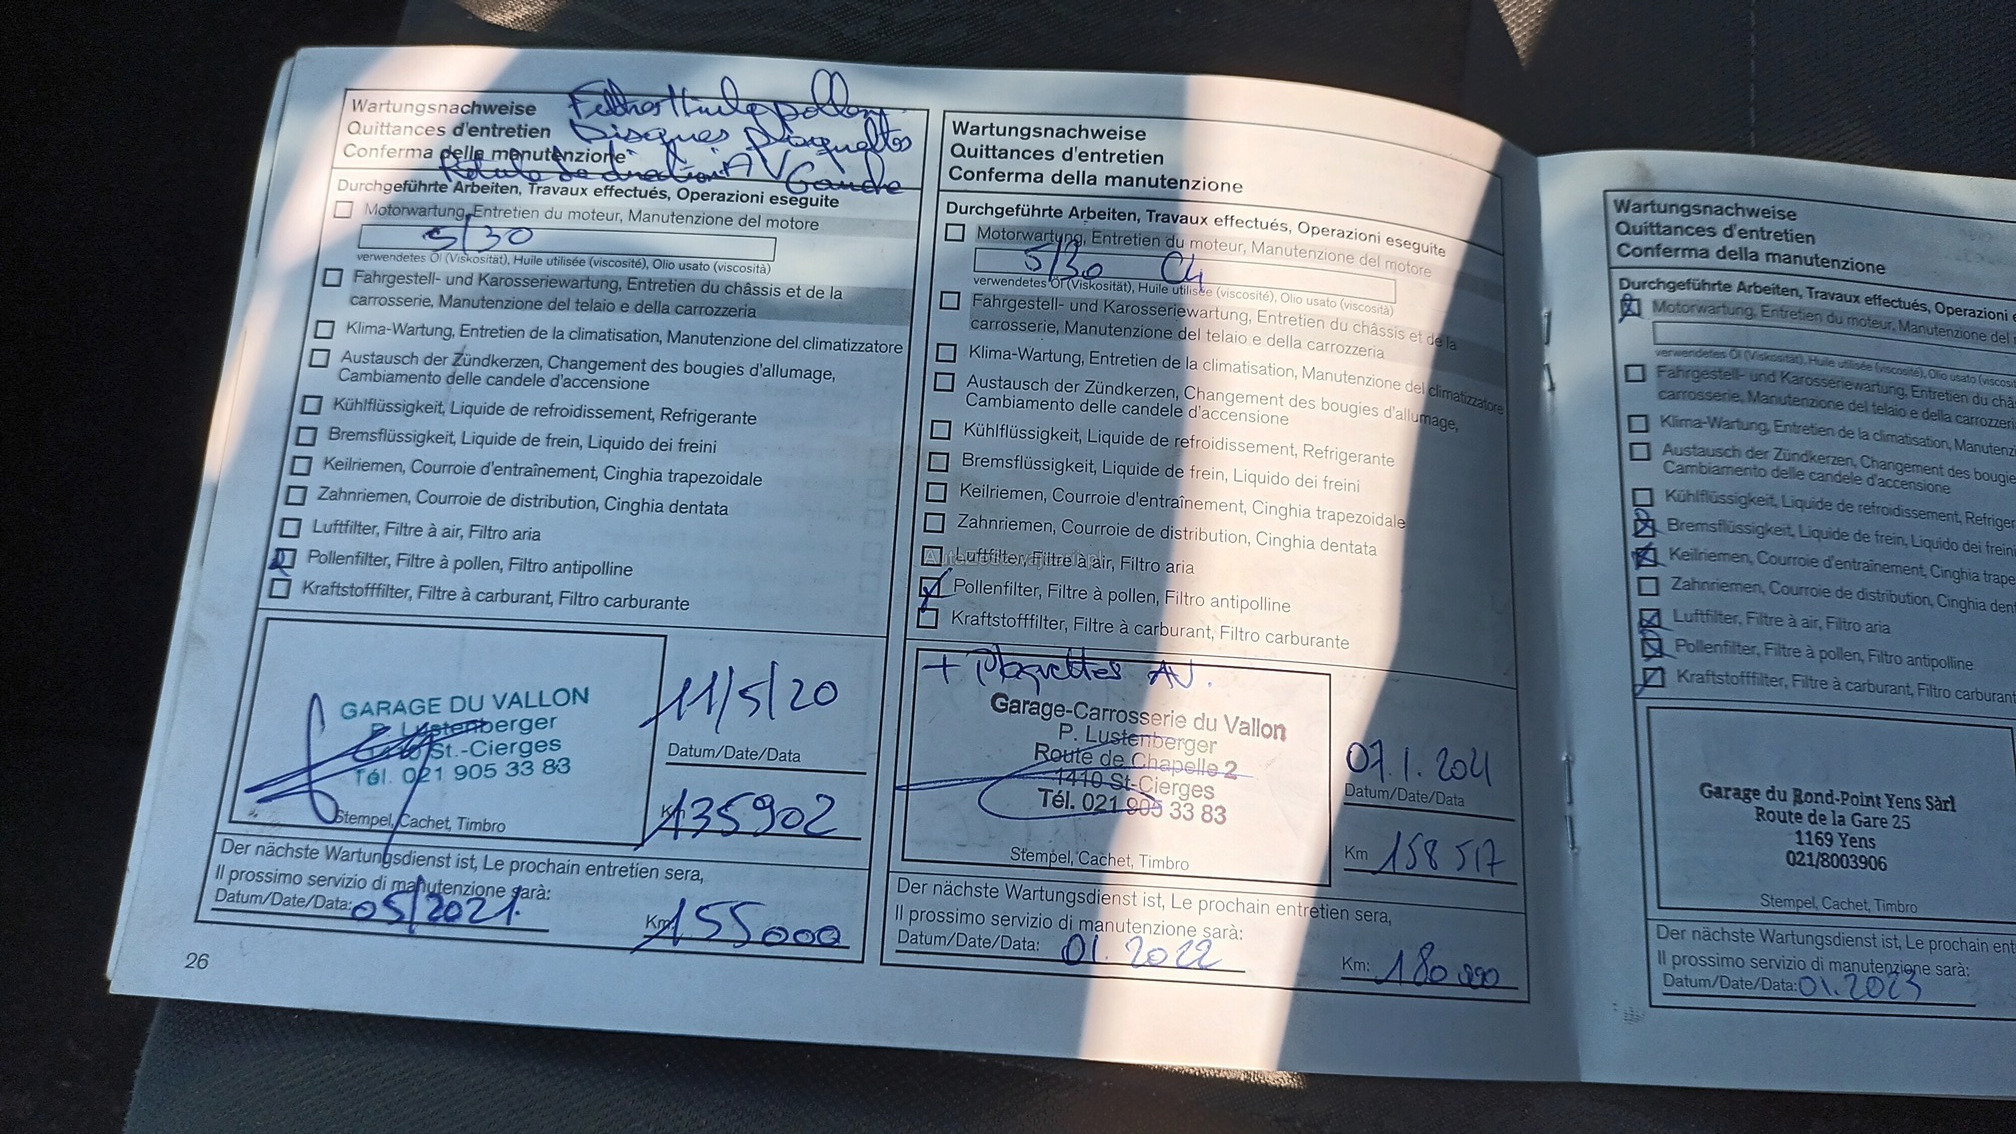 Wartungsnachweise
Quittances d'entretien
Conferma della manutenzione
Filtres Huile pollen
Disques plaquettes
Rotule de direction AV Gauche
Durchgeführte Arbeiten, Travaux effectués, Operazioni eseguite
Motorwartung, Entretien du moteur, Manutenzione del motore
5/30
verwendetes Öl (Viskosität), Huile utilisée (viscosité), Olio usato (viscosità)
Fahrgestell- und Karosseriewartung, Entretien du châssis et de la
carrosserie, Manutenzione del telaio e della carrozzeria
Klima-Wartung, Entretien de la climatisation, Manutenzione del climatizzatore
Austausch der Zündkerzen, Changement des bougies d'allumage,
Cambiamento delle candele d'accensione
Kühlflüssigkeit, Liquide de refroidissement, Refrigerante
Bremsflüssigkeit, Liquide de frein, Liquido dei freini
Keilriemen, Courroie d'entraînement, Cinghia trapezoidale
Zahnriemen, Courroie de distribution, Cinghia dentata
Luftfilter, Filtre à air, Filtro aria
Pollenfilter, Filtre à pollen, Filtro antipolline
Kraftstofffilter, Filtre à carburant, Filtro carburante
GARAGE DU VALLON
P. Lustenberger
1410 St.-Cierges
Tél. 021 905 33 83
Stempel, Cachet, Timbro
11/5/20
Datum/Date/Data
Km 135902
Der nächste Wartungsdienst ist, Le prochain entretien sera,
Il prossimo servizio di manutenzione sarà:
Datum/Date/Data: 05/2021.
Km: 155000
26
Wartungsnachweise
Quittances d'entretien
Conferma della manutenzione
Durchgeführte Arbeiten, Travaux effectués, Operazioni eseguite
Motorwartung, Entretien du moteur, Manutenzione del motore
5/30 C4
verwendetes Öl (Viskosität), Huile utilisée (viscosité), Olio usato (viscosità)
Fahrgestell- und Karosseriewartung, Entretien du châssis et de la
carrosserie, Manutenzione del telaio e della carrozzeria
Klima-Wartung, Entretien de la climatisation, Manutenzione del climatizzatore
Austausch der Zündkerzen, Changement des bougies d'allumage,
Cambiamento delle candele d'accensione
Kühlflüssigkeit, Liquide de refroidissement, Refrigerante
Bremsflüssigkeit, Liquide de frein, Liquido dei freini
Keilriemen, Courroie d'entraînement, Cinghia trapezoidale
Zahnriemen, Courroie de distribution, Cinghia dentata
Luftfilter, Filtre à air, Filtro aria
Pollenfilter, Filtre à pollen, Filtro antipolline
Kraftstofffilter, Filtre à carburant, Filtro carburante
+ Plaquettes AV.
Garage-Carrosserie du Vallon
P. Lustenberger
Route de Chapelle 2
1410 St-Cierges
Tél. 021 905 33 83
Stempel, Cachet, Timbro
07.1.2021
Datum/Date/Data
Km 158517
Der nächste Wartungsdienst ist, Le prochain entretien sera,
Il prossimo servizio di manutenzione sarà:
Datum/Date/Data: 01.2022
Km: 180.000
Wartungsnachweise
Quittances d'entretien
Conferma della manutenzione
Durchgeführte Arbeiten, Travaux effectués, Operazioni
Motorwartung, Entretien du moteur, Manutenzione del
verwendetes Öl (Viskosität), Huile utilisée (viscosité), Olio usato
Fahrgestell- und Karosseriewartung, Entretien du
carrosserie, Manutenzione del telaio e della
Klima-Wartung, Entretien de la climatisation,
Austausch der Zündkerzen, Changement des
Cambiamento delle candele d'accensione
Kühlflüssigkeit, Liquide de refroidissement,
Bremsflüssigkeit, Liquide de frein, Liquido dei
Keilriemen, Courroie d'entraînement, Cinghia
Zahnriemen, Courroie de distribution, Cinghia
Luftfilter, Filtre à air, Filtro aria
Pollenfilter, Filtre à pollen, Filtro antipolline
Kraftstofffilter, Filtre à carburant, Filtro
Garage du Rond-Point Yens Sàrl
Route de la Gare 25
1169 Yens
021/8003906
Stempel, Cachet, Timbro
Der nächste Wartungsdienst ist, Le prochain
Il prossimo servizio di manutenzione sarà:
Datum/Date/Data: 01.2023